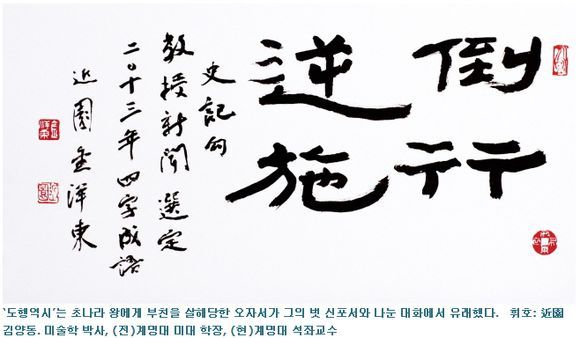 倒行
逆施
史記句
敎授新聞 選定
二〇十三年 四字成語
近園 金洋東
‘도행역시’는 초나라 왕에게 부친을 살해당한 오자서가 그의 벗 신포서와 나눈 대화에서 유래했다. 휘호: 近園
김양동. 미술학 박사, (전)계명대 미대 학장, (현)계명대 석좌교수